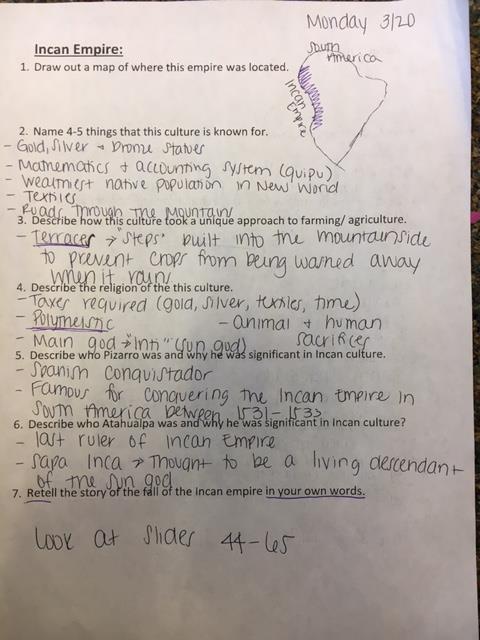 Monday 3/20
Incan Empire:
1. Draw out a map of where this empire was located.
South
America
Incan
Empire
2. Name 4-5 things that this culture is known for.
- Gold, silver + Bronze Statues
- Mathematics + accounting system (quipu)
- Wealthiest native population in New World
- Textiles
- Roads Through The Mountains
3. Describe how this culture took a unique approach to farming/ agriculture.
- Terraces → "steps" built into the mountainside
to prevent crops from being washed away
when it rains
4. Describe the religion of the this culture.
- Taxes required (gold, silver, textiles, time)
- Polytheistic - animal + human
sacrifices
- Main god → "Inti" (sun god)
5. Describe who Pizarro was and why he was significant in Incan culture.
- Spanish conquistador
- Famous for conquering the Incan Empire in
South America between 1531-1533
6. Describe who Atahualpa was and why he was significant in Incan culture?
- last ruler of Incan Empire
- Sapa Inca → Thought to be a living descendant
of the sun god
7. Retell the story of the fall of the Incan empire in your own words.
look at slides 44-65